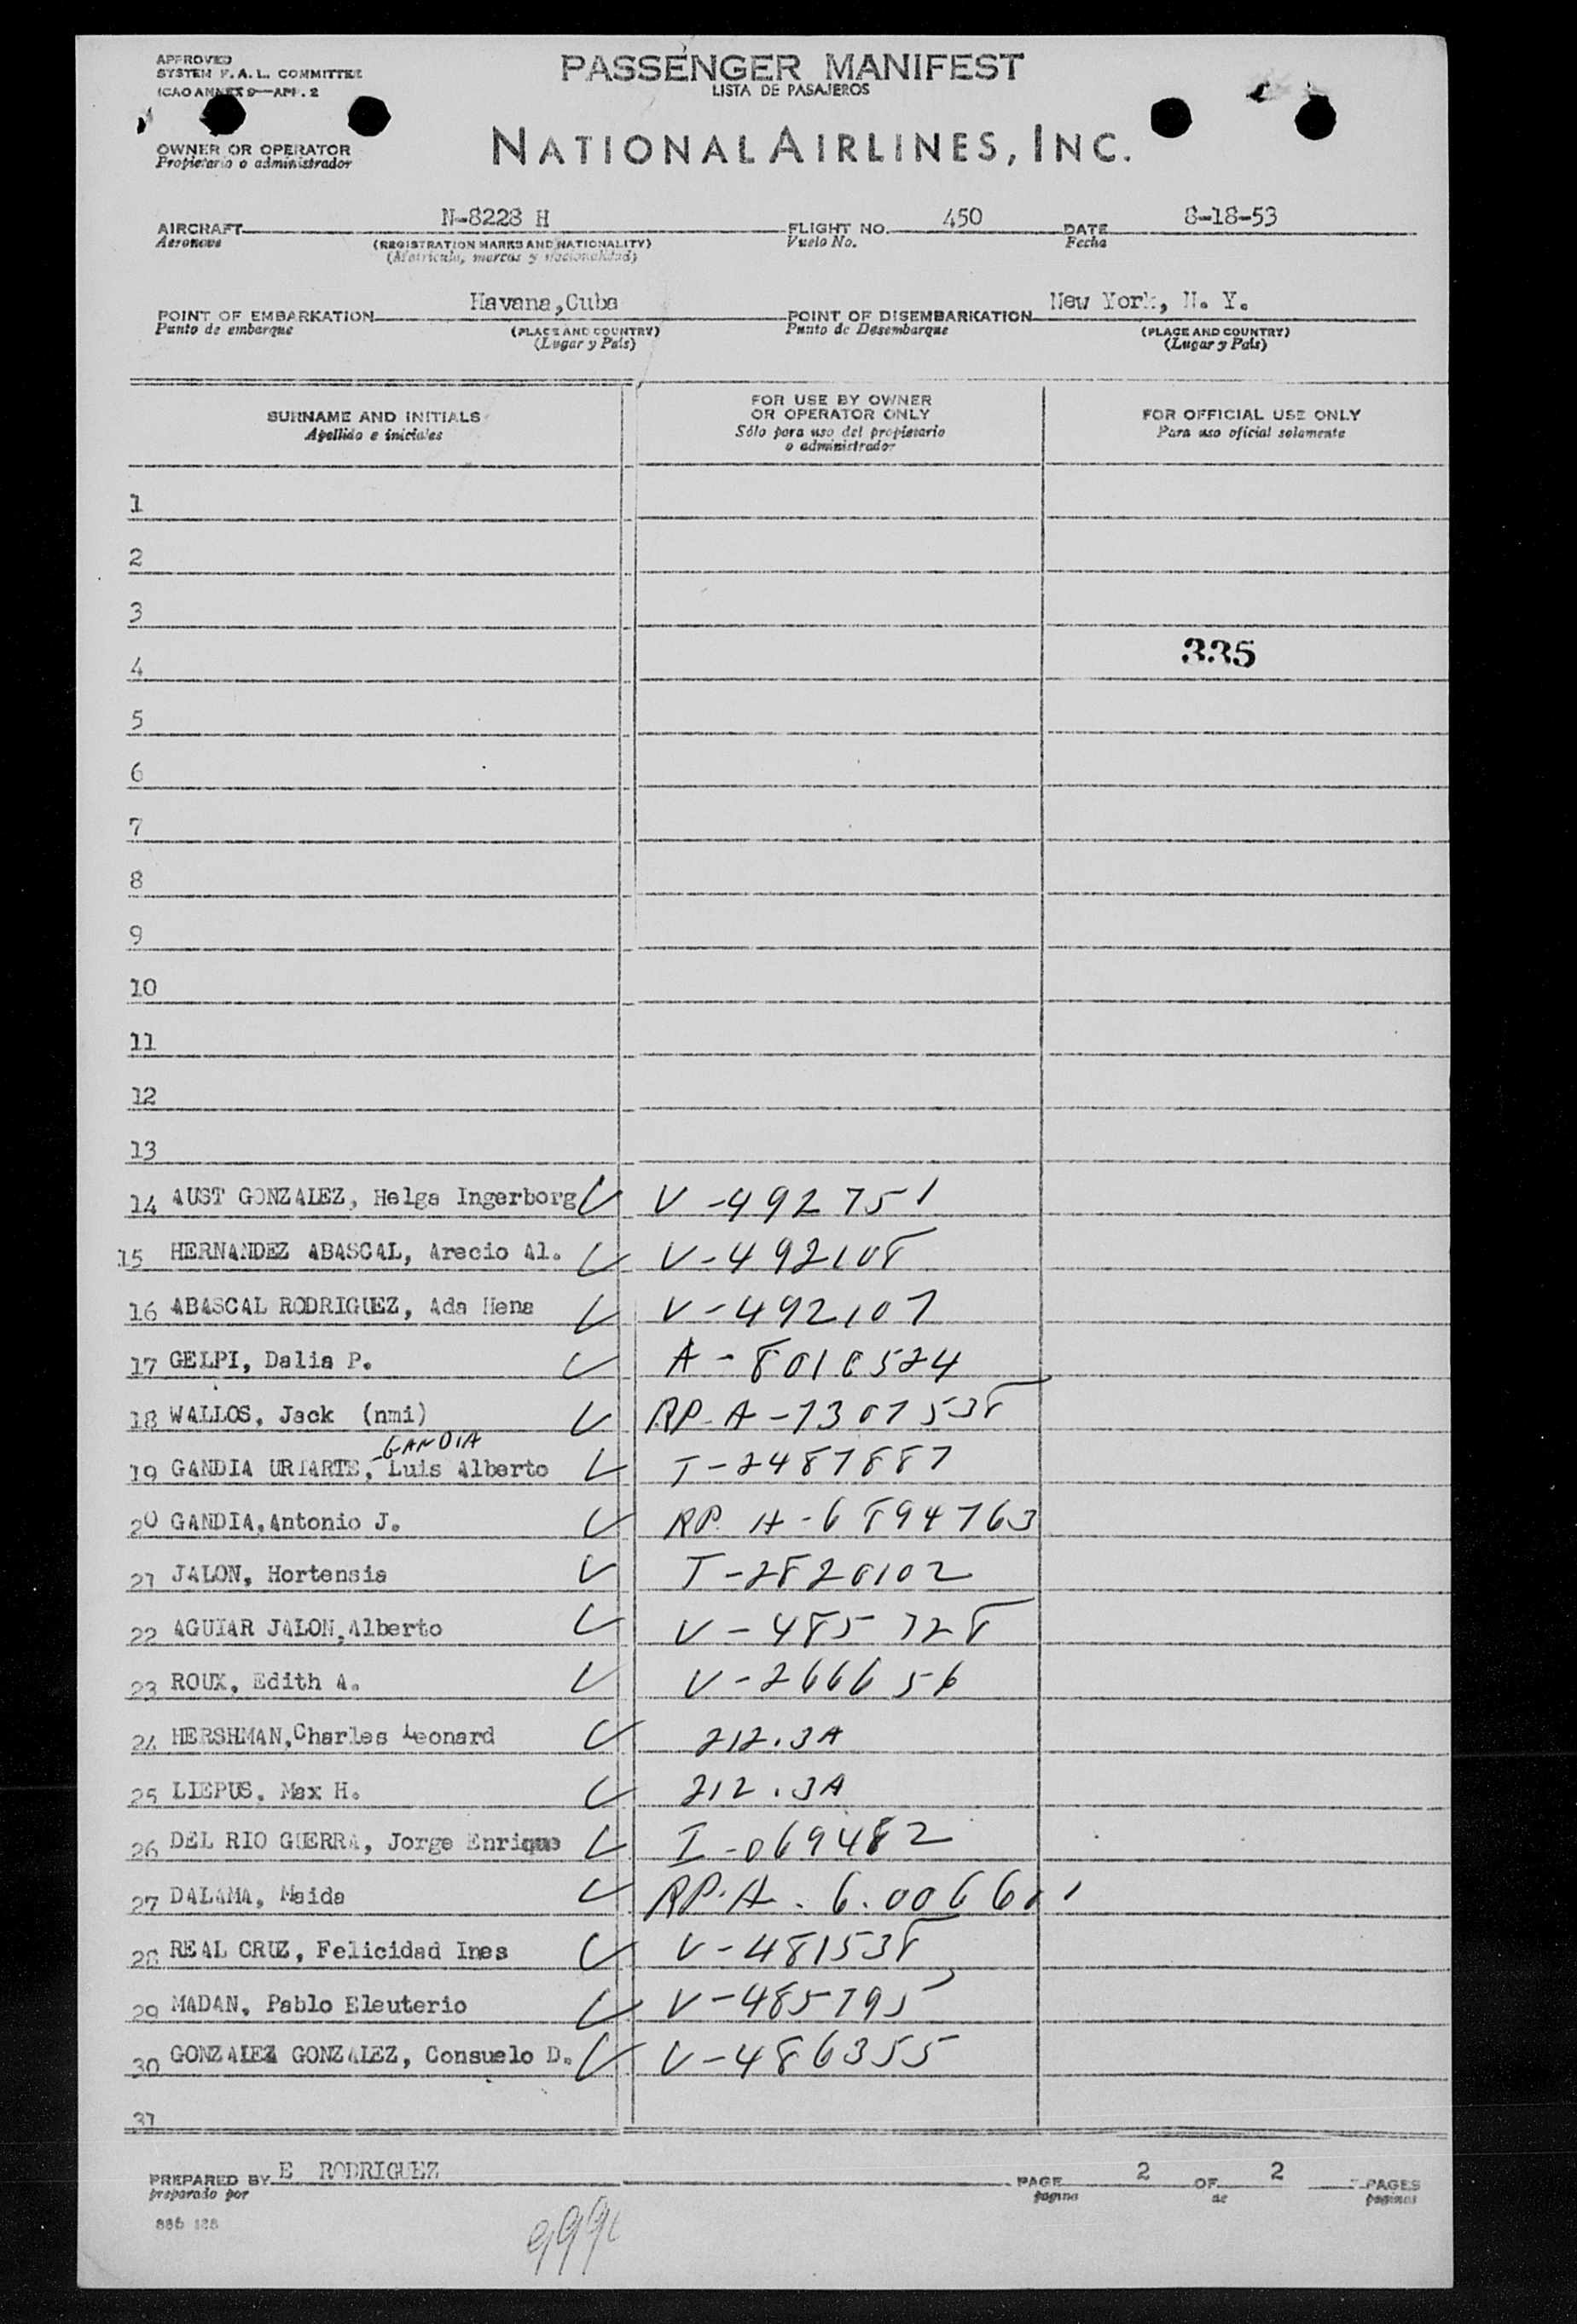 APPROVED
SYSTEM F.A.L. COMMITTEE
ICAO ANNEX 9—APP. 2
PASSENGER MANIFEST
LISTA DE PASAJEROS
OWNER OR OPERATOR
Propietario o administrador
NATIONAL AIRLINES, INC.
AIRCRAFT N-8228 H FLIGHT NO. 450 DATE 8-18-53
Aeronave (REGISTRATION MARKS AND NATIONALITY) Vuelo No. Fecha
(Matricula, marcas y nacionalidad)
POINT OF EMBARKATION Havana,Cuba POINT OF DISEMBARKATION New York, N. Y.
Punto de embarque (PLACE AND COUNTRY) Punto de Desembarque (PLACE AND COUNTRY)
(Lugar y País) (Lugar y País)
SURNAME AND INITIALS
Apellido e iniciales
FOR USE BY OWNER
OR OPERATOR ONLY
Sólo para uso del propietario
o administrador
FOR OFFICIAL USE ONLY
Para uso oficial solamente
1
2
3
4 335
5
6
7
8
9
10
11
12
13
14 AUST GONZALEZ, Helga Ingerborg V-492751
15 HERNANDEZ ABASCAL, Arecio Al. V-492108
16 ABASCAL RODRIGUEZ, Ada Hena V-492107
17 GELPI, Dalia P. A-8010524
18 WALLOS, Jack (nmi) RP.A-7307538
-GANDIA
19 GANDIA URIARTE, Luis Alberto T-2487887
20 GANDIA,Antonio J. RP. A-6894763
21 JALON, Hortensia T-2820102
22 AGUIAR JALON,Alberto V-485728
23 ROUX, Edith A. V-266656
24 HERSHMAN,Charles Leonard 212.3A
25 LIEPUS, Max H. 212.3A
26 DEL RIO GUERRA, Jorge Enrique I-069482
27 DALAMA, Maida RP.A.
28 REAL CRUZ, Felicidad Ines V-481538
29 MADAN, Pablo Eleuterio V-485795
30 GONZALEZ GONZALEZ, Consuelo D. V-486355
31
PREPARED BY E RODRIGUEZ PAGE 2 OF 2 PAGES
preparado por pagina de paginas